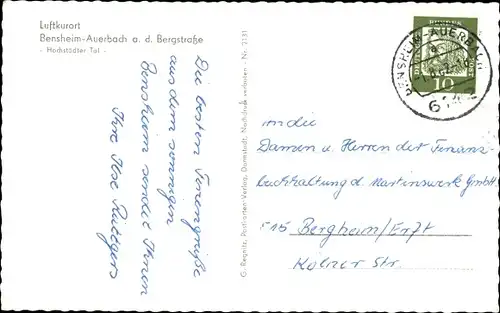 Luftkurort
Bensheim-Auerbach a. d. Bergstraße
- Hochstädter Tal -
Die besten Feriengrüße
aus dem sonnigen
Bensheim sendet Ihnen
Ihre Ilse Rüttgers
G. Regnitz, Postkarten-Verlag, Darmstadt, Nachdruck verboten - Nr. 7131
BENSHEIM-AUERBACH
614
10
An die
Damen u. Herren der Finanz-
buchhaltung d. Martinswerk GmbH
515 Bergheim/Erft
Kölner Str.